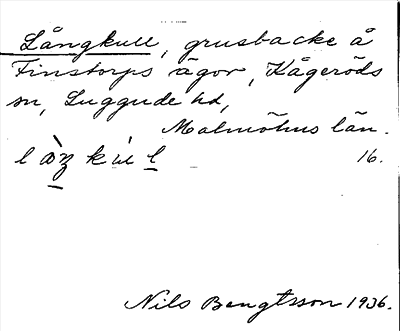 Långkull, grusbacke å
Finstorps ägor, Kågeröds
sn, Luggude hd,
Malmöhus län.
16.
Nils Bengtsson 1936.